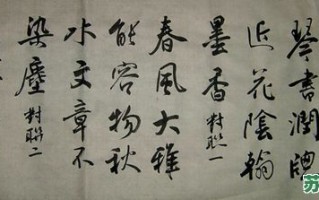 琴書潤
近花陰翰
墨香 對聯一
春風大雅
能容物秋
水文章不
染塵 對聯二
苏